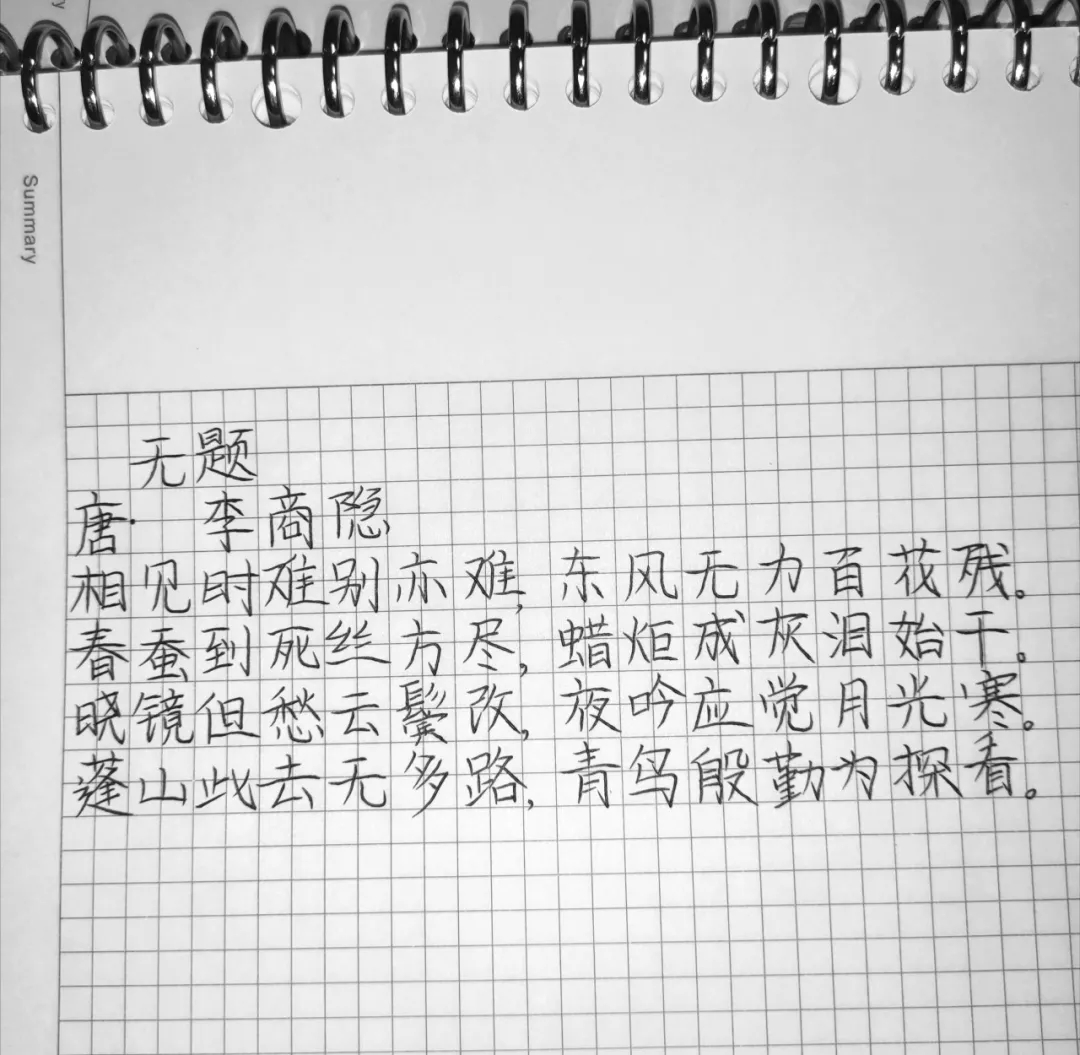 Summary
无题
唐· 李商隐
相见时难别亦难,东风无力百花残。
春蚕到死丝方尽,蜡炬成灰泪始干。
晓镜但愁云鬓改,夜吟应觉月光寒。
蓬山此去无多路,青鸟殷勤为探看。